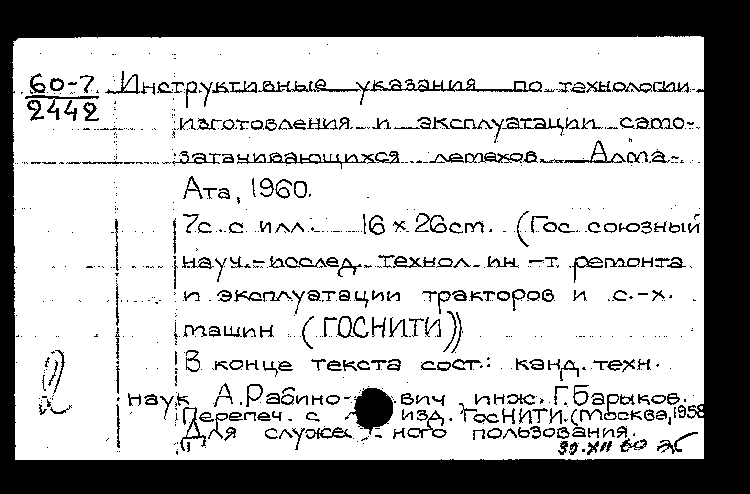 60-7 Инструктивные указания по технологии
2442
изготовления и эксплуатации само-
затачивающихся лемехов. Алма-
Ата, 1960.
7с. с илл. 16 x 26см. (Гос союзный
науч.-исслед. технол ин-т ремонта
и эксплуатации тракторов и с.-х.
машин (ГОСНИТИ))
В конце текста сост.: канд. техн.
2
наук А. Рабино-вич, инж. Г. Барыков.
Перепеч. с изд. ГосНИТИ. (Москва, 1958
Для служебного пользования.
30.XII 60